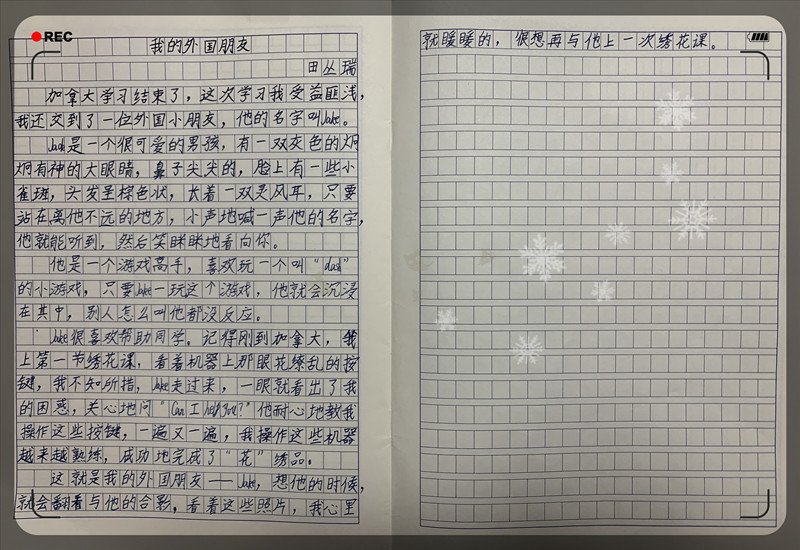 REC
我的外国朋友
田丛瑞
加拿大学习结束了，这次学习我受益匪浅，
我还交到了一位外国小朋友，他的名字叫Jake。
Jake是一个很可爱的男孩，有一双灰色的炯
炯有神的大眼睛，鼻子尖尖的，脸上有一些小
雀斑，头发呈棕色状，长着一双灵风耳，只要
站在离他不远的地方，小声地喊一声他的名字，
他就能听到，然后笑眯眯地看向你。
他是一个游戏高手，喜欢玩一个叫“dash”
的小游戏，只要Jake一玩这个游戏，他就会沉浸
在其中，别人怎么叫他都没反应。
Jake很喜欢帮助同学。记得刚到加拿大，我
上第一节绣花课，看着机器上那眼花缭乱的按
键，我不知所措，Jake走过来，一眼就看出了我
的困惑，关心地问“Can I help you?”他耐心地教我
操作这些按键，一遍又一遍，我操作这些机器
越来越熟练，成功地完成了“花”绣品。
这就是我的外国朋友——Jake，想他的时候，
就会翻看与他的合影，看着这些照片，我心里
就暖暖的，很想再与他上一次绣花课。